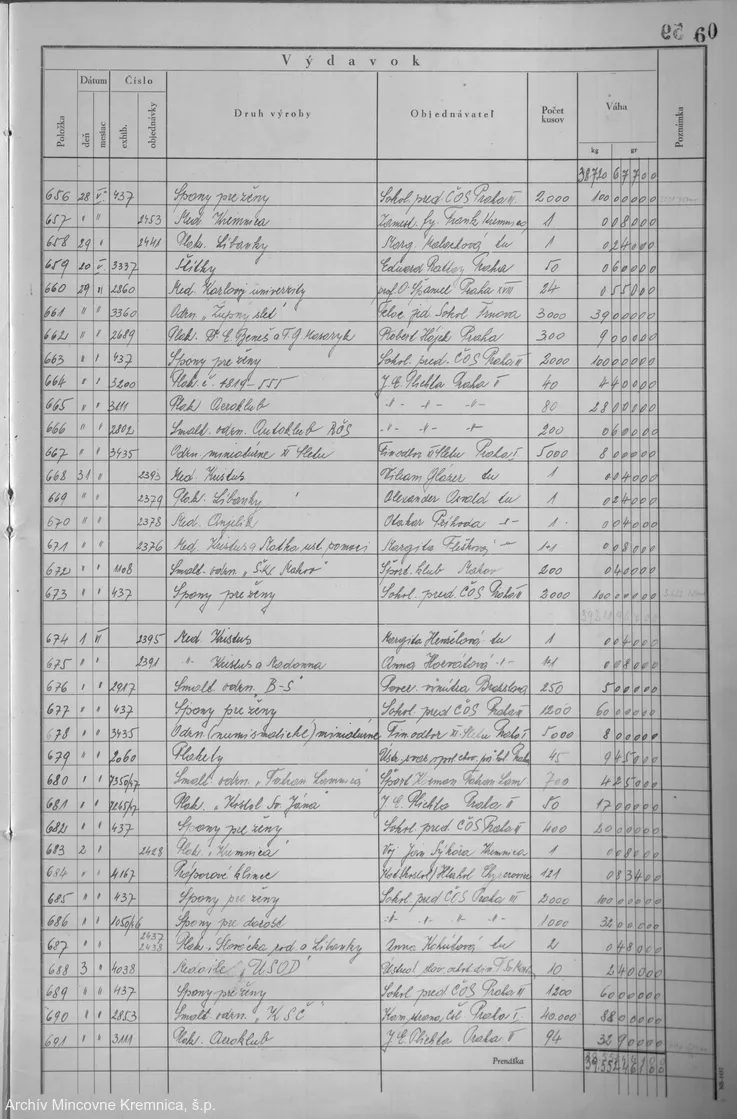 59 60
Výdavok
Položka Dátum Číslo Druh výroby Objednávateľ Počet kusov Váha Poznámka
deň mesiac exhib. objednávky kg gr
38720 67700
656 28 V. 437 Spony pre ženy Sokol. pred. ČOS Praha III 2000 100 00000
657 " " 2453 Med. Kremnica Zamest. fy. Frank Kremnica 1 0 008 00
658 29 " 2441 Plak. Libanky Marg. tu 1 0 024 00
659 20 V. 3337 Štítky Eduard Praha 50 0 060 00
660 29 VI 2860 Med. Karlovej univerzity prof. O. Španiel Praha XVIII 24 0 550 00
661 " " 3360 Odzn. „Župný slet" jed. Sokol Trnova 3000 39 000 00
662 " " 2689 Plak. Dr. E. Beneš a T.G. Masaryk Robert Hájek Praha 300 9 000 00
663 " " 437 Spony pre ženy Sokol. pred. ČOS Praha III 2000 100 000 00
664 " " 3200 Plak. č. 1819-555 J. E. Plichta Praha II 40 4 400 00
665 " " 3111 Plak. Aeroklub -"- -"- -"- 80 28 000 00
666 " " 2802 Smalt. odzn. Autoklub RČS " " " 200 0 600 00
667 " " 3435 Odzn. miniatúrne XI Sletu Finodbor XI Sletu Praha I. 5000 8 000 00
668 31 " 2393 Med. Kristus Viliam Glázer tu 1 0 004 00
669 " " 2379 Plak. Libanky Alexander tu 1 0 024 00
670 " " 2378 Med. Anjelik Otakar Príhoda -"- 1 0 004 00
671 " " 2376 Med. Kristus a Matka ust. pomoci Margita -"- 1+1 0 008 00
672 " " 1108 Smalt. odzn. „ŠK Makov" Šport. klub Makov 200 0 400 00
673 " " 437 Spony pre ženy Sokol. pred. ČOS Praha III 2000 100 000 00
674 1 VI 2395 Med. Kristus Margita tu 1 0 004 00
675 " " 2391 -"- Kristus a Madonna Anna Horvátová -"- 1+1 0 008 00
676 " " 2917 Smalt. odzn. „B-S" Pover. vnútra Bratislava 250 5 000 00
677 " " 437 Spony pre ženy Sokol. pred ČOS Praha III 1200 60 000 00
678 " " 3435 Odzn. (numismatické) miniatúrne Finodbor XI Sletu Praha I 5000 8 000 00
679 " " 2060 Plakety 45 9 450 00
680 " " 7350/47 Smalt. odzn. „Tatran Lomnica" Šport 700 4 250 00
681 " " 7265/47 Plak. „Kostol Sv. Jána" J. E. Plichta Praha II 50 17 000 00
682 " " 437 Spony pre ženy Sokol. pred ČOS Praha III 400 20 000 00
683 2 " 2428 Plak. „Kremnica" Voj. Ján Sýkora Kremnica 1 0 008 00
684 " " 4167 Práporové klince 121 0 834 00
685 " " 437 Spony pre ženy Sokol. pred ČOS Praha III 2000 100 000 00
686 " " 1050/46 Spony pre dorast -"- -"- " -"- 1000 32 000 00
687 " " 2437 2438 Plak. Slovácka rod. a Libanky Anna Kohútová tu 2 0 048 00
688 3 " 4038 Medaile „ÚSOD" 10 2 400 00
689 " " 437 Spony pre ženy Sokol. pred ČOS Praha III 1200 60 000 00
690 " " 2853 Smalt. odzn. „KSČ" Kom. strana Čsl. Praha I. 40.000 88 000 00
691 " " 3111 Plak. Aeroklub J. E. Plichta Praha II 94 32 900 00
Prenáška 39.552 46100
Archív Mincovne Kremnica, š.p.